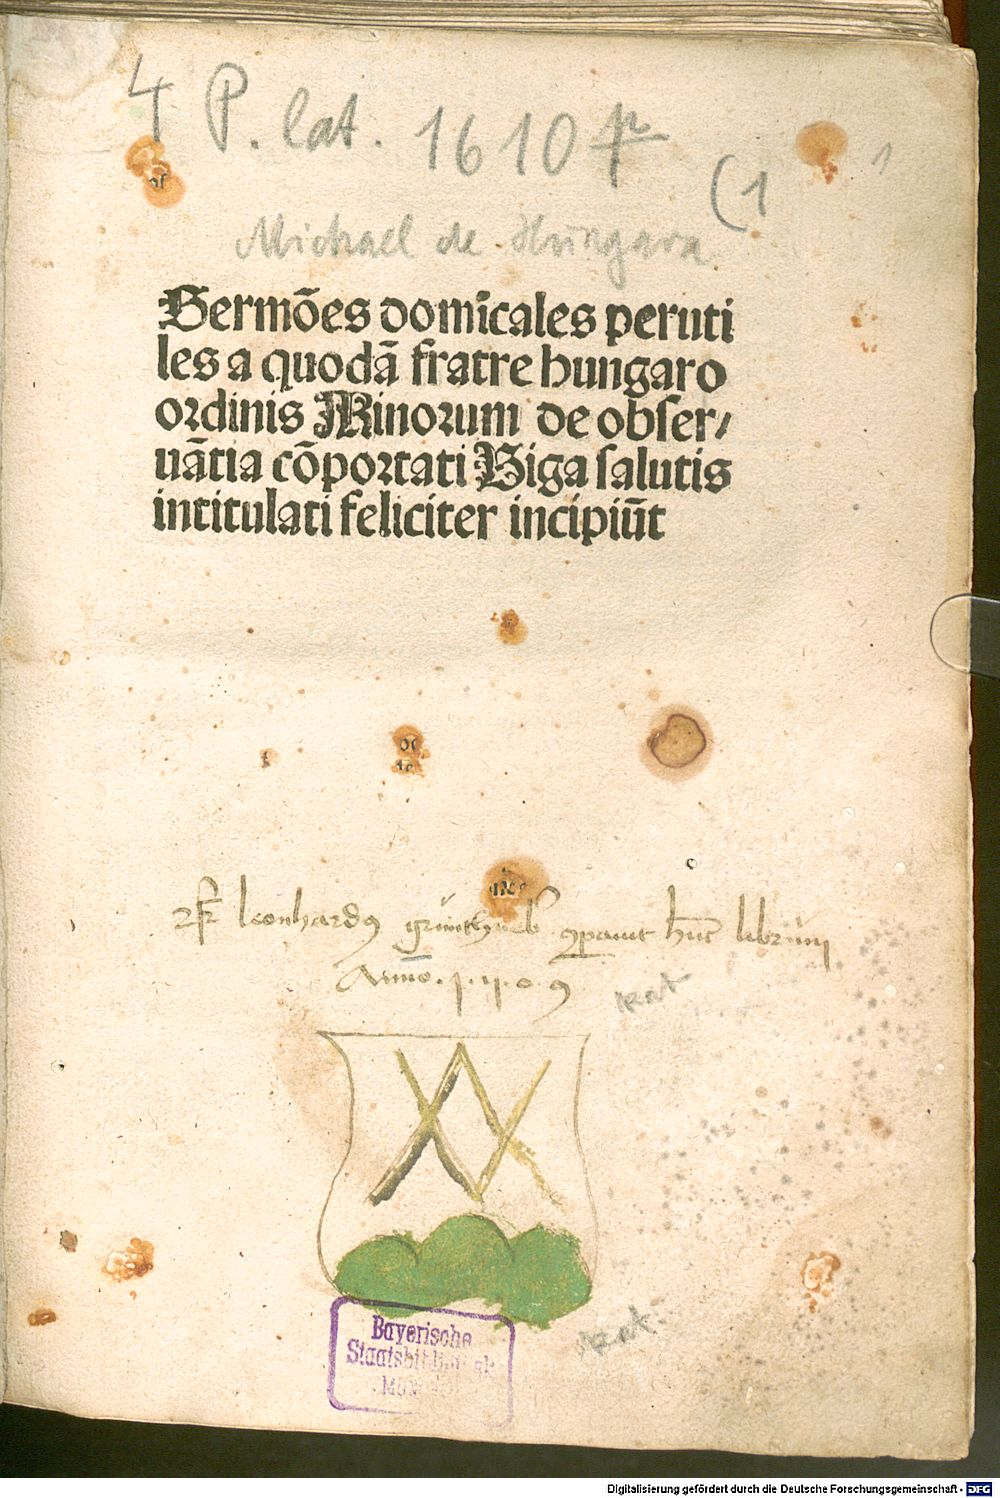 4 P. lat. 1610
(1
1
Michael de Hungara
Sermões domĩcales peruti
les a quodã fratre hungaro
ordinis Minorum de obser⸗
uãtia cõportati Biga salutis
intitulati feliciter incipiũt
leonhardꝰ ꝯparauit hũc librum
Anno. 1. 5. 0. 9
kat
kat.
Bayerische
Staatsbibliothek
Digitalisierung gefördert durch die Deutsche Forschungsgemeinschaft - DFG